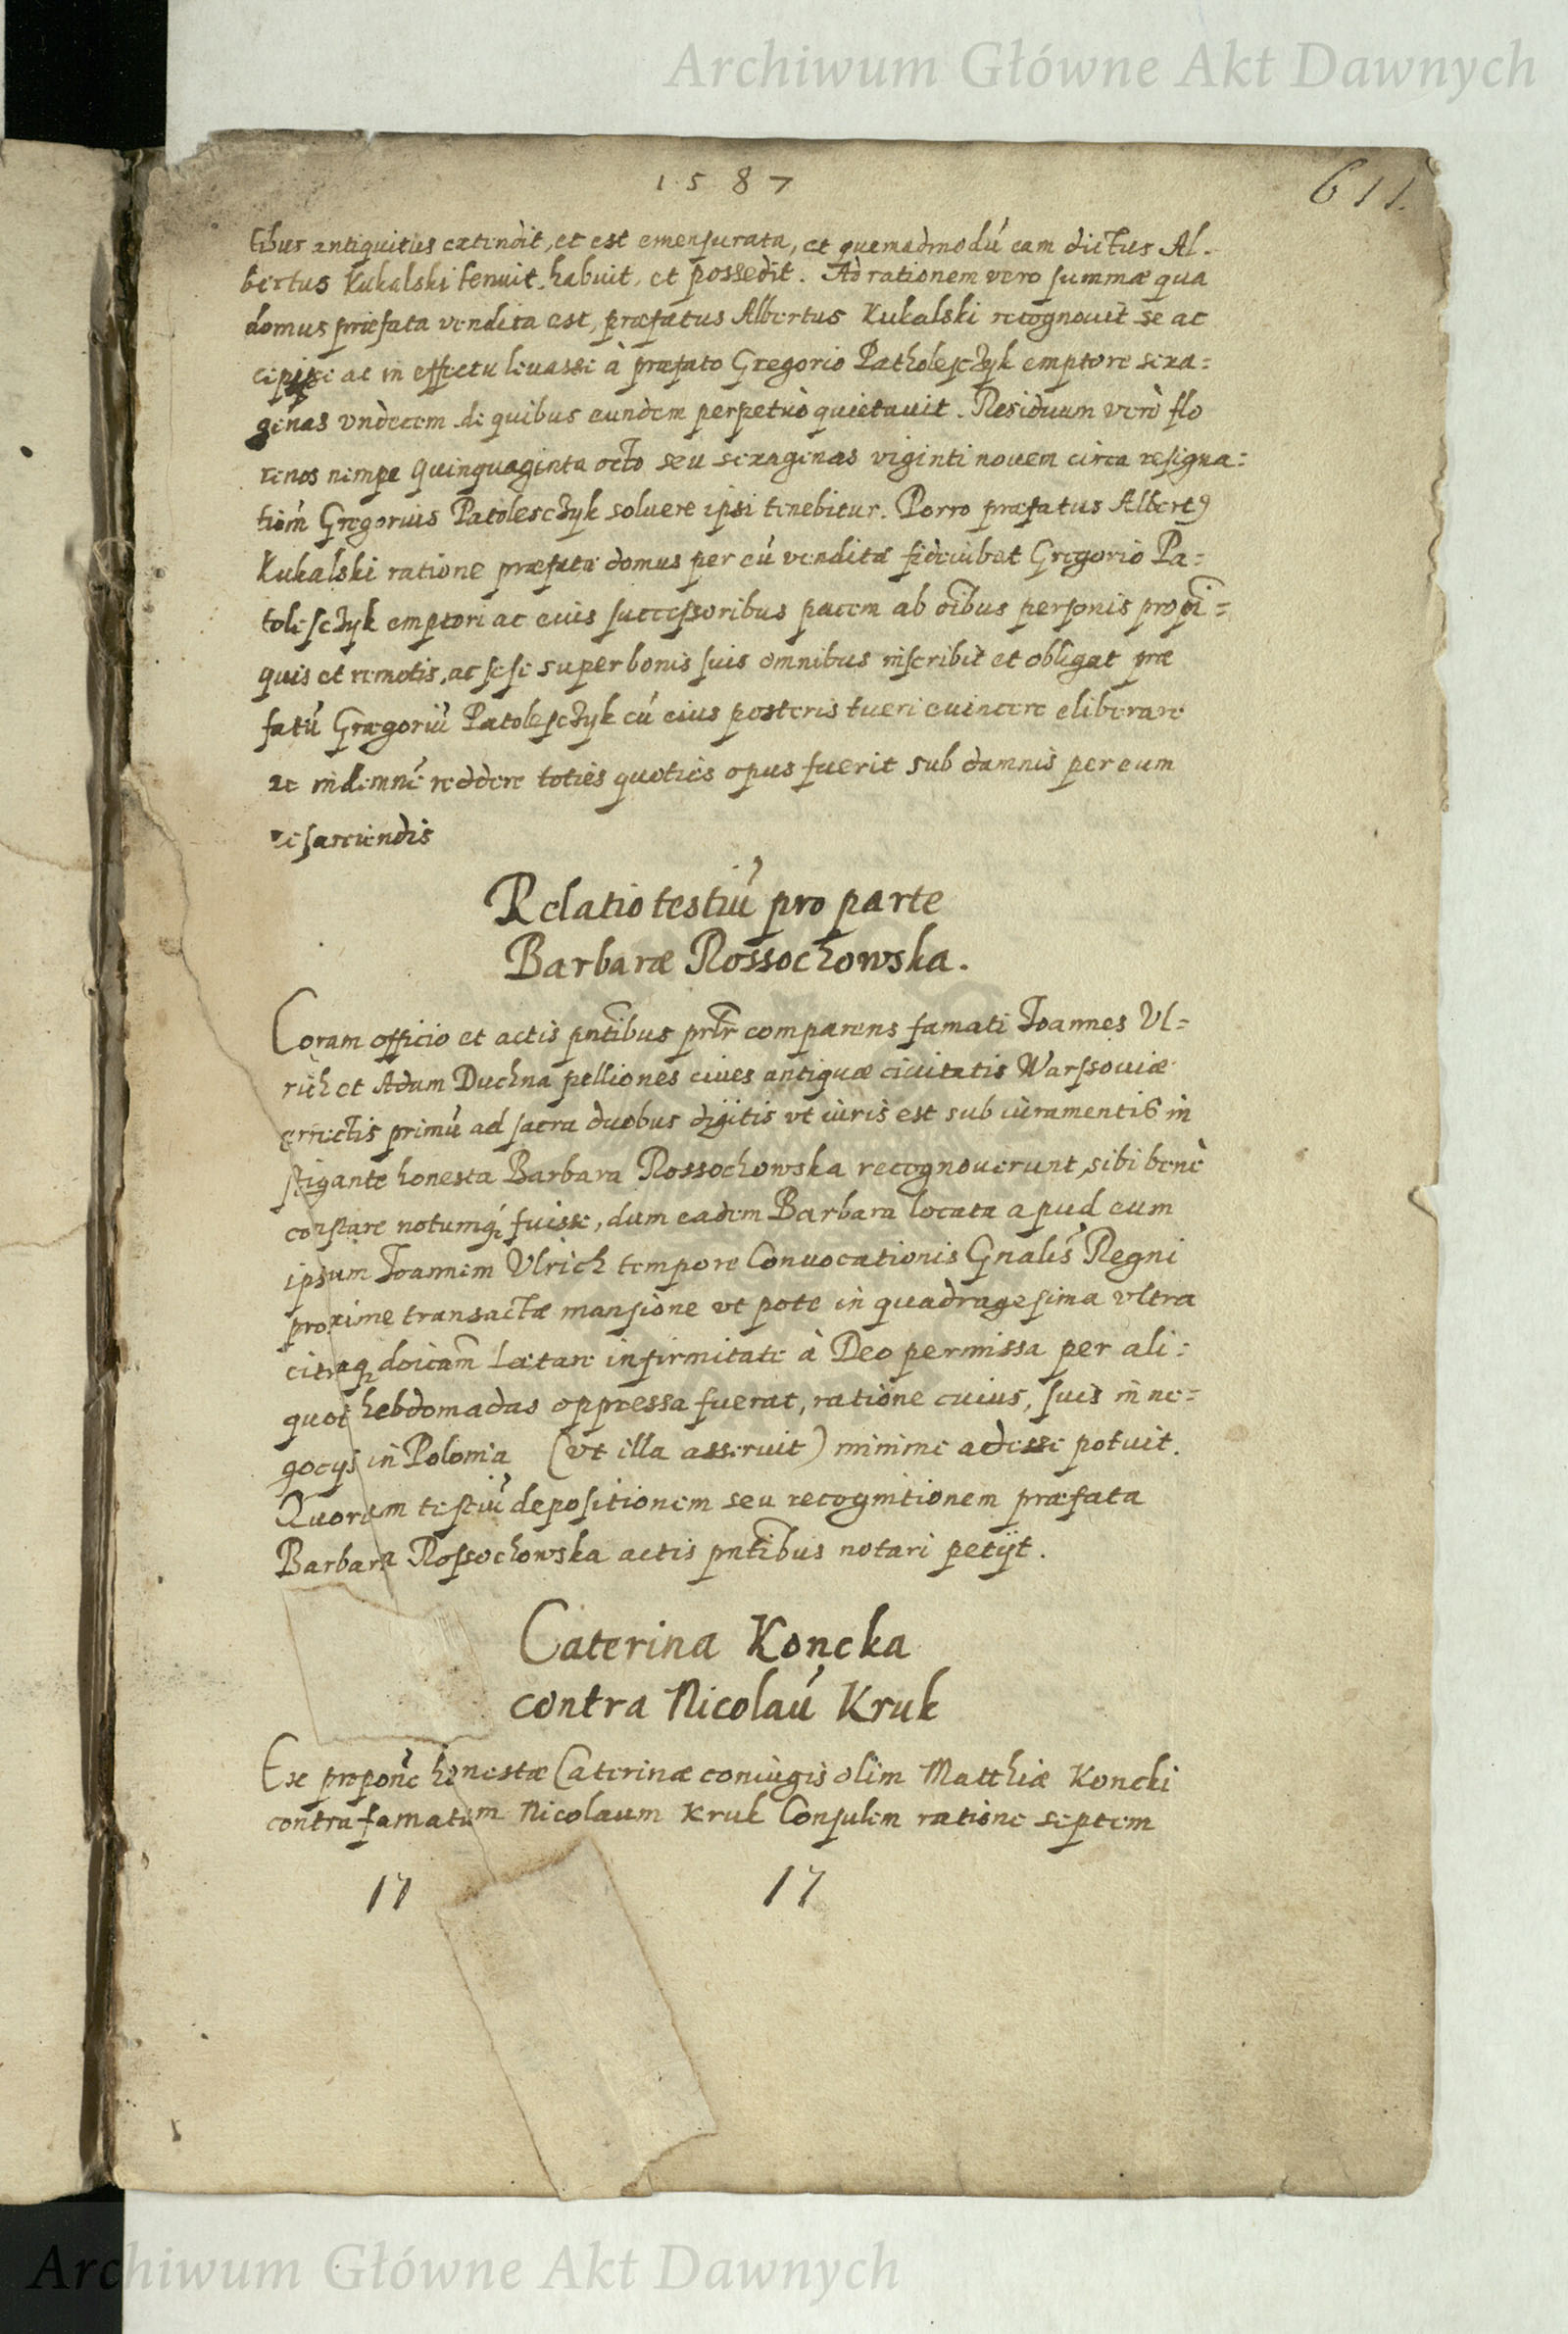 Archiwum Główne Akt Dawnych
1587
611.
tibus antiquitus extendit, et est emensurata, et quemadmodú eam dictus Al-
bertus Kukalski tenuit, habuit, et possedit. Ad rationem vero summæ qua
domus præfata vendita est, præfatus Albertus Kukalski recognouit se ac
cepisse ac in effectu leuasse à præfato Gregorio Patholesczyk emptore sexa=
genas vndecem de quibus eundem perpetuò quietauit. Residuum verò flo
renos nempe quinquaginta octo seu sexagenas viginti nouem circa resigna=
tiom̃ Gregorius Patolesczyk soluere ipsi tenebitur. Porro præfatus Albertꝰ
Kukalski ratione præfatæ domus per eú venditæ fideiubet Gregorio Pa=
tolesczyk emptori ac eius successoribus pacem ab oĩbus personis propĩ=
quis et remotis, ac sese super bonis suis omnibus inscribit et obligat præ
fatú Gregoriú Patolesczyk cú eius posteris tueri euincere eliberare
ac indemné reddere toties quoties opus fuerit sub damnis per eum
resarciendis
Relatio testiú pro parte
Barbaræ Rossochowska.
Coram officio et actis pñtibus prĩr comparens famati Joannes Vl=
rich et Adam Duchna pelliones ciues antiquæ ciuitatis Warssouiæ
errectis primú ad sacra duobus digitis vt iuris est sub iuramentis in
stigante honesta Barbara Rossochowska recognouerunt, sibi benè
constare notumq́ fuisse, dum eadem Barbara locata apud eum
ipsum Joannem Vlrich tempore Conuocationis Gñalis Regni
proxime transactæ mansione vt pote in quadragesima vltra
citraq doicam̃ Lætare infirmitate à Deo permissa per ali=
quot hebdomadas oppressa fuerat, ratione cuius, suis in ne=
gocijs in Polonia (vt illa asseruit) minime adesse potuit.
Quorum testiú depositionem seu recognitionem præfata
Barbara Rossochowska actis pñtibus notari petijt.
Caterina Koncka
contra Nicolaú Kruk
Ex propoñe honestæ Caterinæ coniugis olim Matthiæ Koncki
contra famatum Nicolaum Kruk Consulem ratione septem
17 17
Archiwum Główne Akt Dawnych